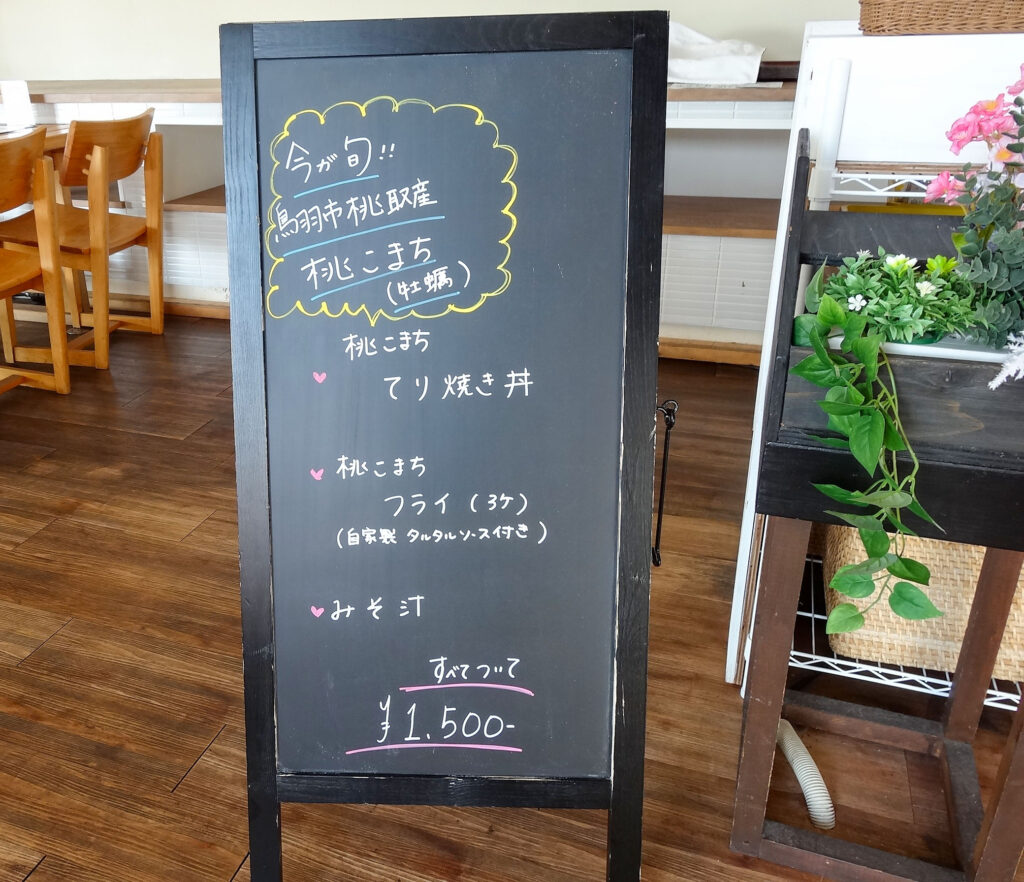 今が旬!!
鳥羽市桃取産
桃こまち
(牡蠣)
桃こまち
てり焼き丼
桃こまち
フライ(3ケ)
(自家製 タルタルソース付き)
みそ汁
すべてついて
¥1,500-